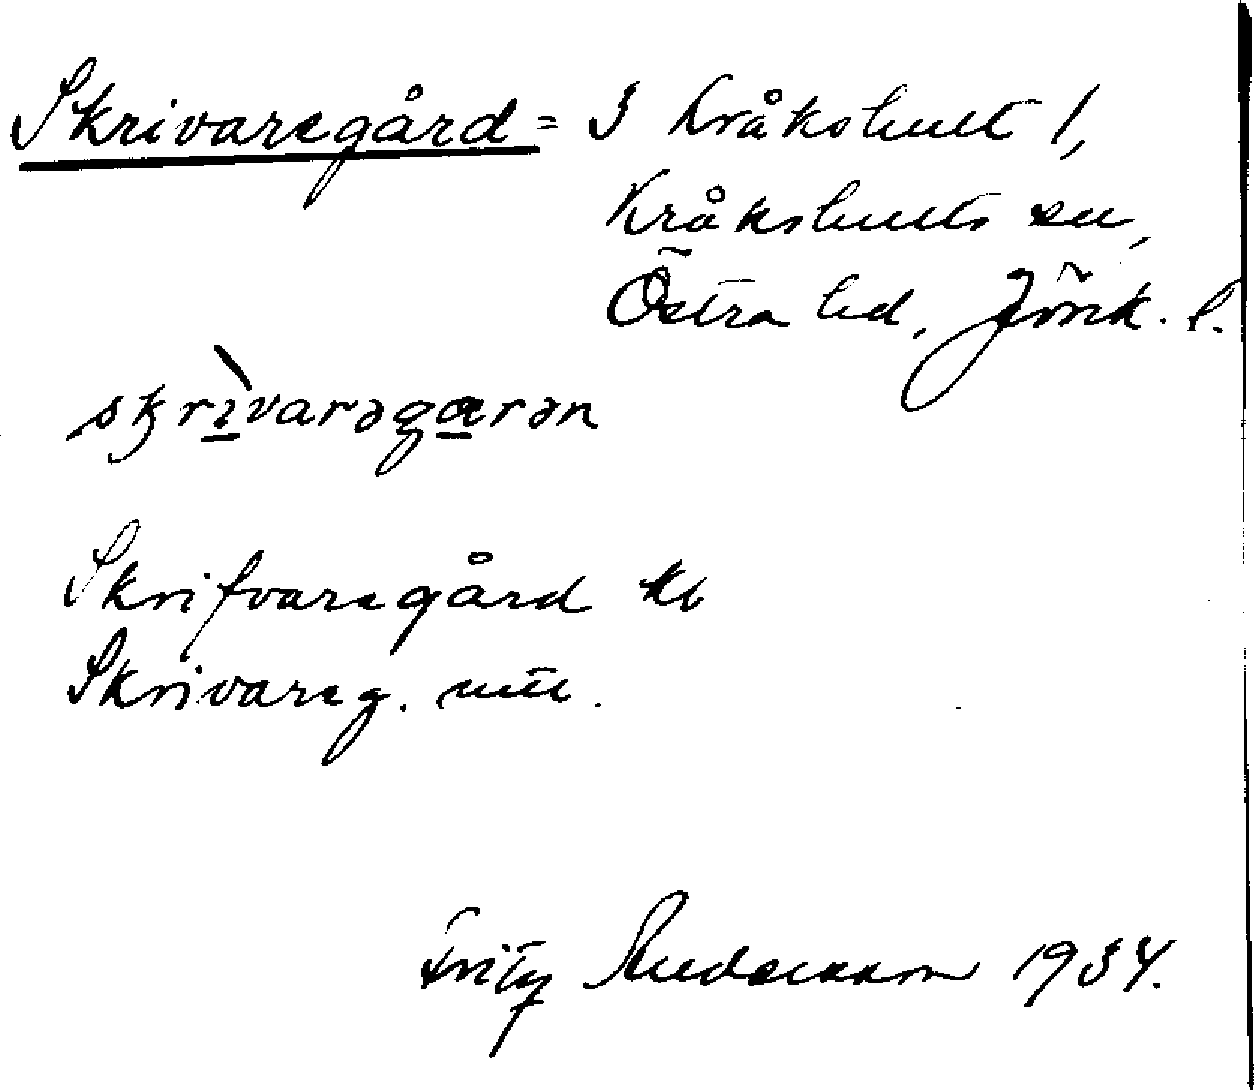 Skrivaregård = 3 Kråkshult 1,
Kråkshults sn,
Östra hd, Jönk. l.
skrìvarəgarən
Skrifvaregård kb
Skrivareg. mtl.
Fritz 1934.